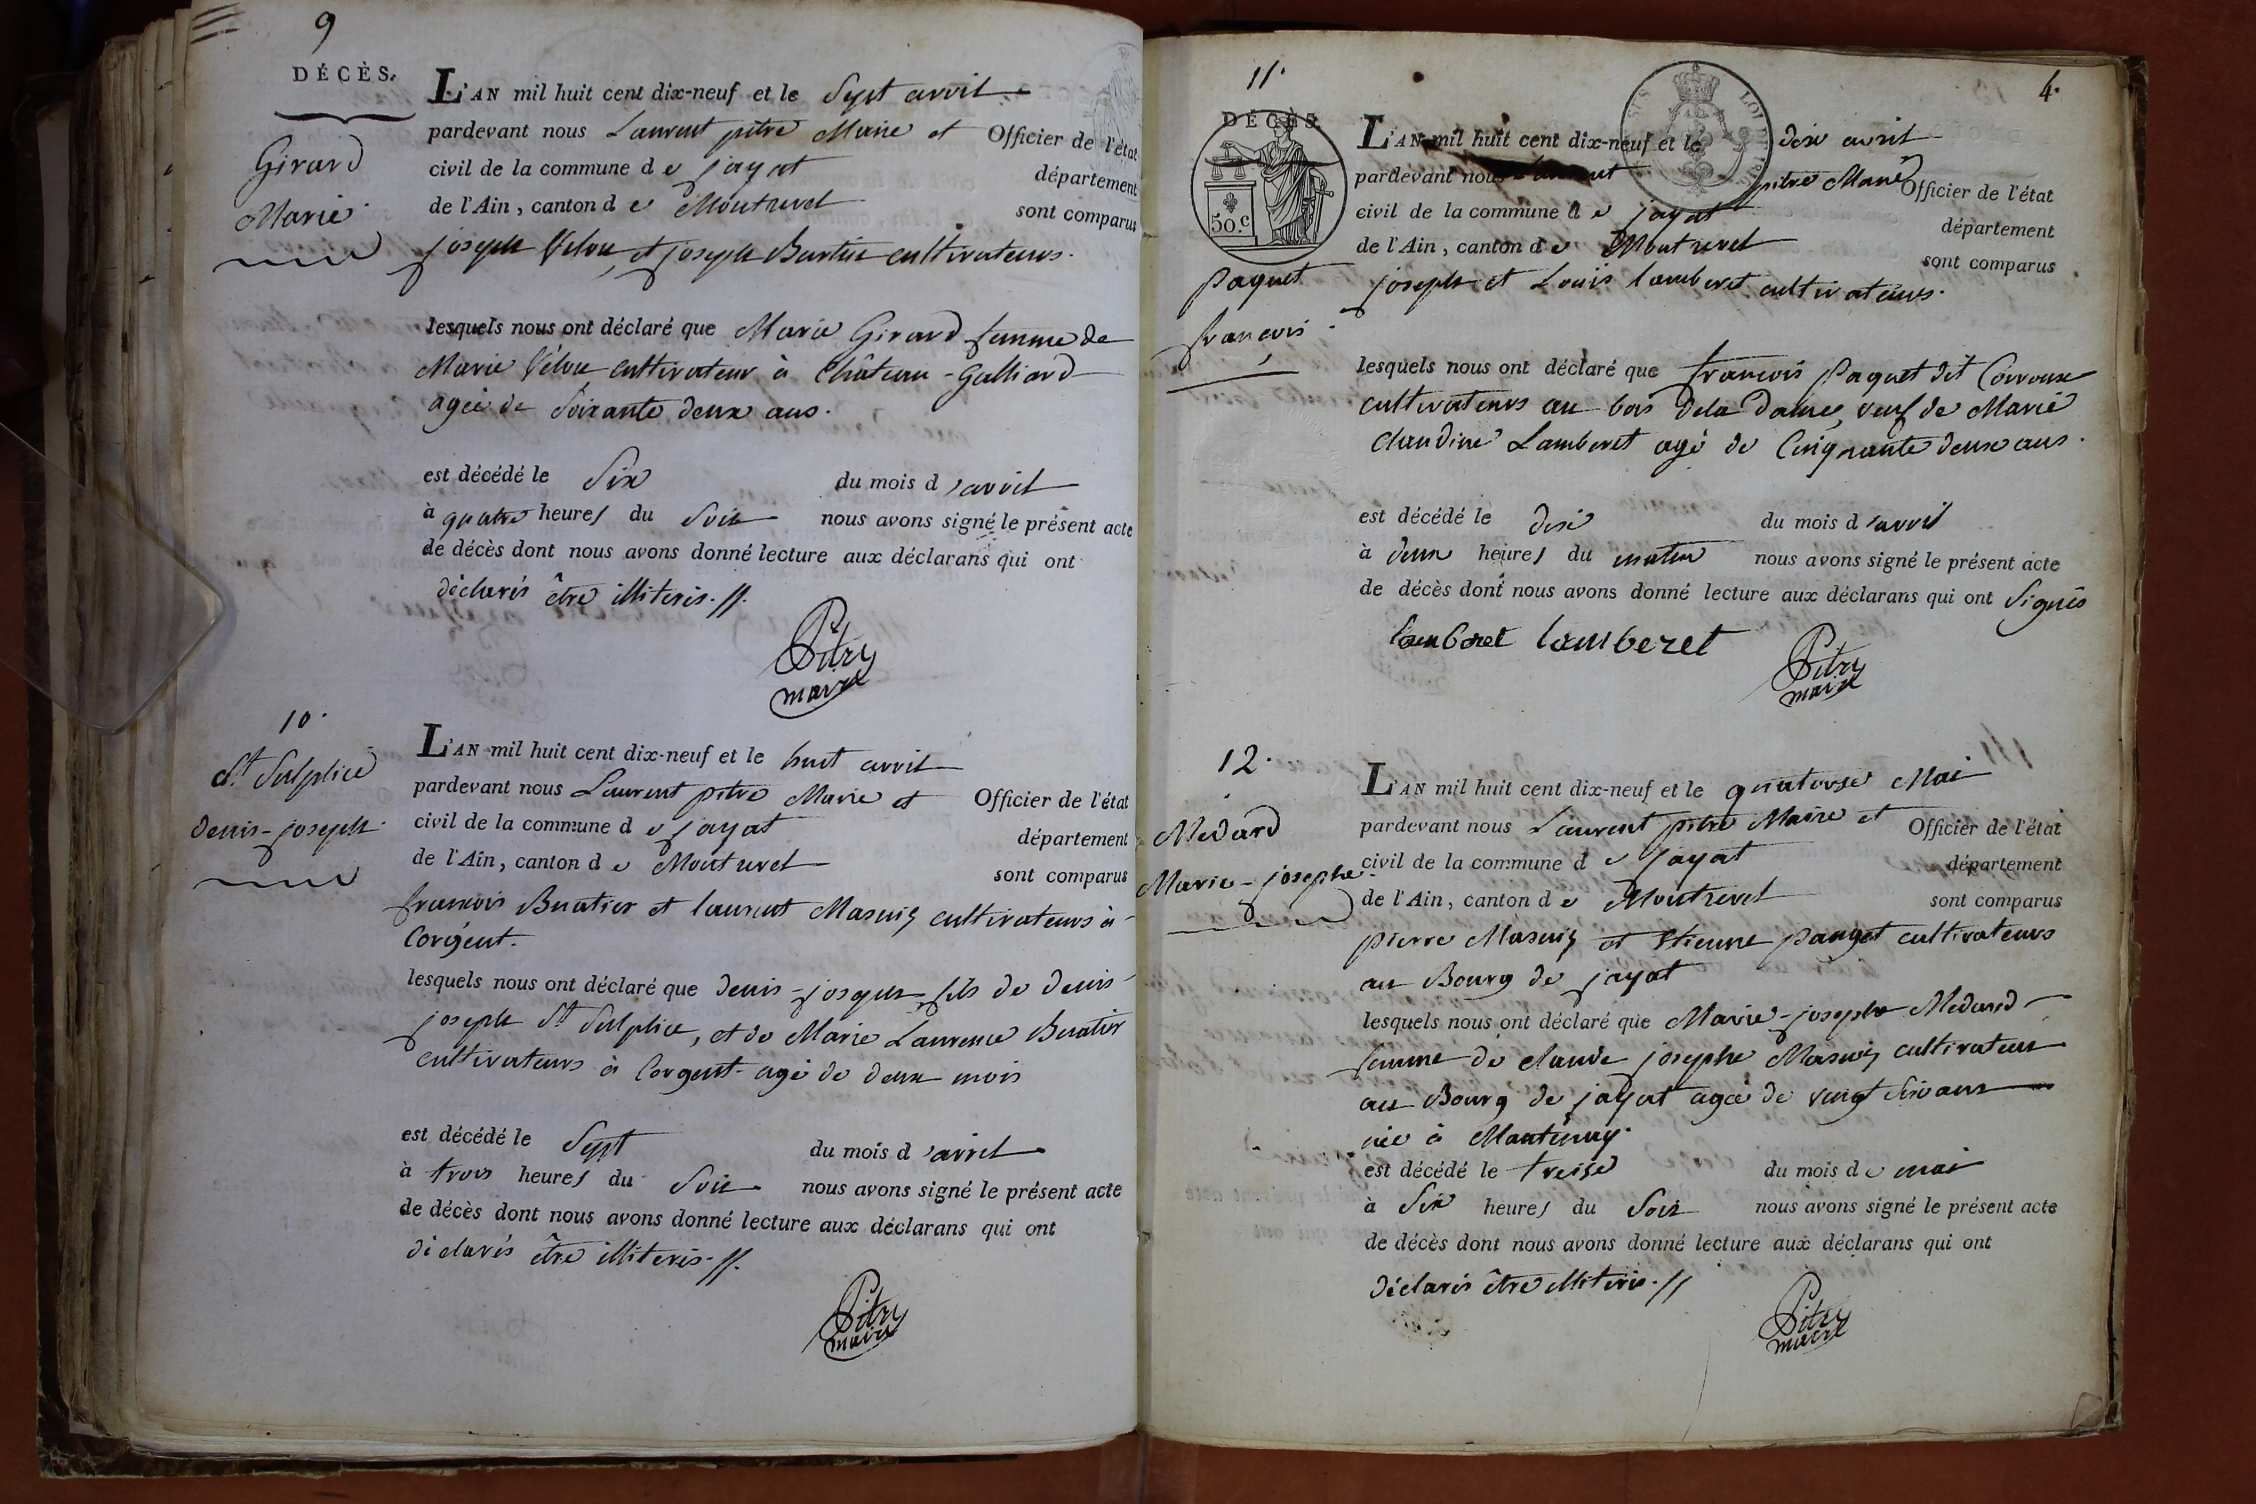 9
DÉCÈS.
Girard
Marie
L'AN mil huit cent dix-neuf et le Sept avril
pardevant nous Laurent pitre Maire et Officier de l'état
civil de la commune de jayat département
de l'Ain, canton de Montrevel sont comparus
joseph Velon et joseph Burtin cultivateurs.
lesquels nous ont déclaré que Marie Girard femme de
Marie Vélon cultivateur à Château-Galliard
agée de Soixante deux ans.
est décédé le Six du mois d'avril
à quatre heures du Soir nous avons signé le présent acte
de décès dont nous avons donné lecture aux déclarans qui ont
déclarés être illiterés.//.
Pitre
maire
10.
St Sulplice
denis-joseph.
L'AN mil huit cent dix-neuf et le huit avril
pardevant nous Laurent pitre Maire et Officier de l'état
civil de la commune de jayat département
de l'Ain, canton de Montrevel sont comparus
francois Buatier et laurent Masuiy cultivateurs à
Corgent.
lesquels nous ont déclaré que denis-joseph, fils de denis-
joseph St Sulplice, et de Marie Laurence Buatier
cultivateurs à Corgent agé de deux mois
est décédé le Sept du mois d'avril
à trois heures du Soir nous avons signé le présent acte
de décès dont nous avons donné lecture aux déclarans qui ont
déclarés être illiterés.//.
Pitre
maire
11.
4.
DÉCÈS.
50.c
LOI DE 1816
paquet
francois.
L'AN mil huit cent dix-neuf et le dix avril
pardevant nous pitre Maire Officier de l'état
civil de la commune de jayat département
de l'Ain, canton de Montrevel sont comparus
joseph et Louis lamberet cultivateurs.
lesquels nous ont déclaré que francois paquet dit Corroux
cultivateurs au bois dela dame, veuf de Marie
claudine Lamberet agé de Cinquante deux ans.
est décédé le dix du mois d'avril
à deux heures du matin nous avons signé le présent acte
de décès dont nous avons donné lecture aux déclarans qui ont Signés
lamberet lamberet
Pitre
maire
12.
Médard
Marie-josephe.
L'AN mil huit cent dix-neuf et le quatorse Mai
pardevant nous Laurent pitre Maire et Officier de l'état
civil de la commune de jayat département
de l'Ain, canton de Montrevel sont comparus
pierre Masuiy et Etienne pauget cultivateurs
au Bourg de jayat
lesquels nous ont déclaré que Marie-josephe Médard
femme de claude josephe Masuiy cultivateur
au Bourg de jayat agée de vingt Six ans
née à Mantenay.
est décédé le treise du mois de mai
à Six heures du Soir nous avons signé le présent acte
de décès dont nous avons donné lecture aux déclarans qui ont
déclarés être illiterés.//
Pitre
maire